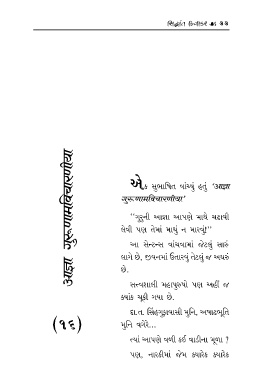 સિદ્ધાંત દિવાકર ૧૧
आज्ञा गुरूणामविचारणीया
(૧૬)
એક સુભાષિત વાંચ્યું હતું ‘आज्ञा
गुरूणामविचारणीया’
“ગુરુની આજ્ઞા આપણે માથે ચઢાવી
લેવી પણ તેમાં માથું ન મારવું!”
આ સેન્ટન્સ વાંચવામાં જેટલું સારું
લાગે છે, જીવનમાં ઉતારવું તેટલું જ અઘરું
છે.
સત્ત્વશાલી મહાપુરુષો પણ અહીં જ
ક્યાંક ચૂકી ગયા છે.
દા.ત. સિંહગુફાવાસી મુનિ, અષાઢભૂતિ
મુનિ વગેરે...
ત્યાં આપણે વળી કઈ વાડીના મૂળા ?
પણ, નારકીમાં જેમ ક્યારેક ક્યારેક